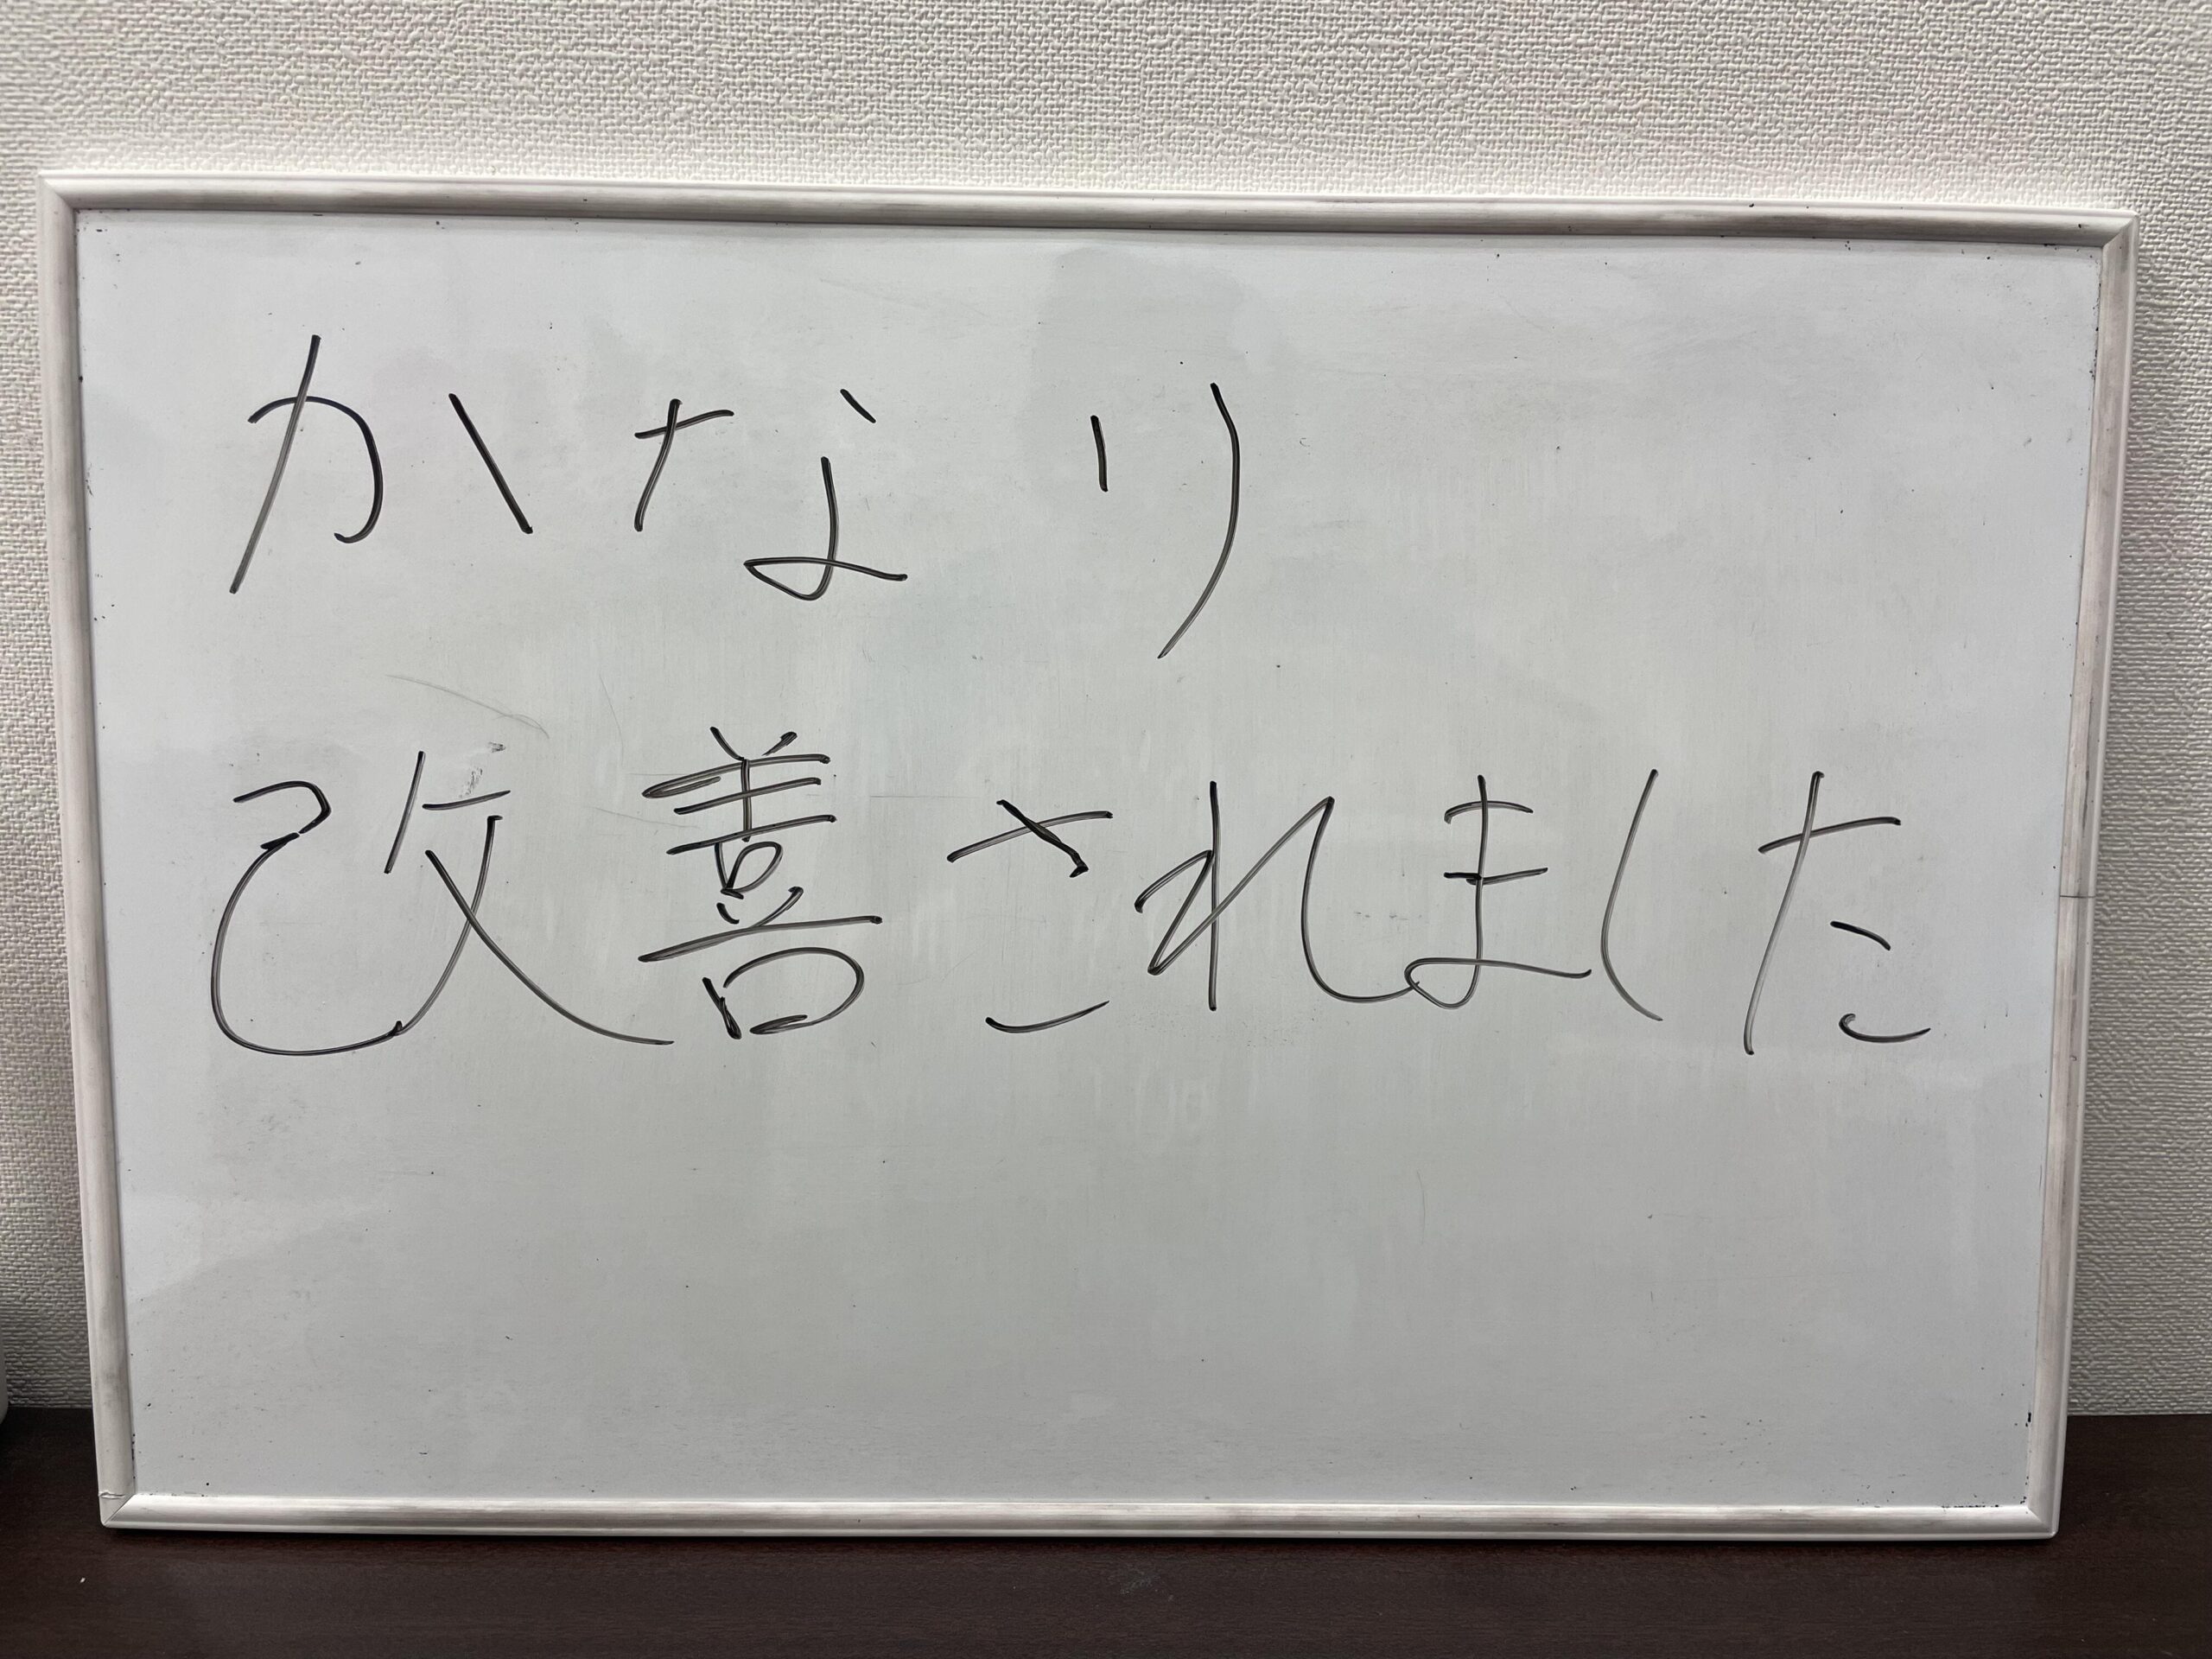 かなり
改善されました